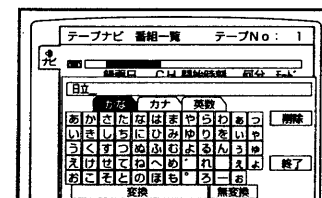 テープナビ 番組一覧 テープNo: 1
ナビ
録画日 CH 開始時刻 何分 モード
日立_
かな カナ 英数
あ か さ た な は ま や ら わ ぁ っ 削除
い き し ち に ひ み ゆ り を ぃ ゃ
う く す つ ぬ ふ む よ る ん ぅ ゅ
え け せ て ね へ め ゛ れ ぇ ょ 終了
お こ そ と の ほ も ゜ ろ ー ぉ
変換 無変換